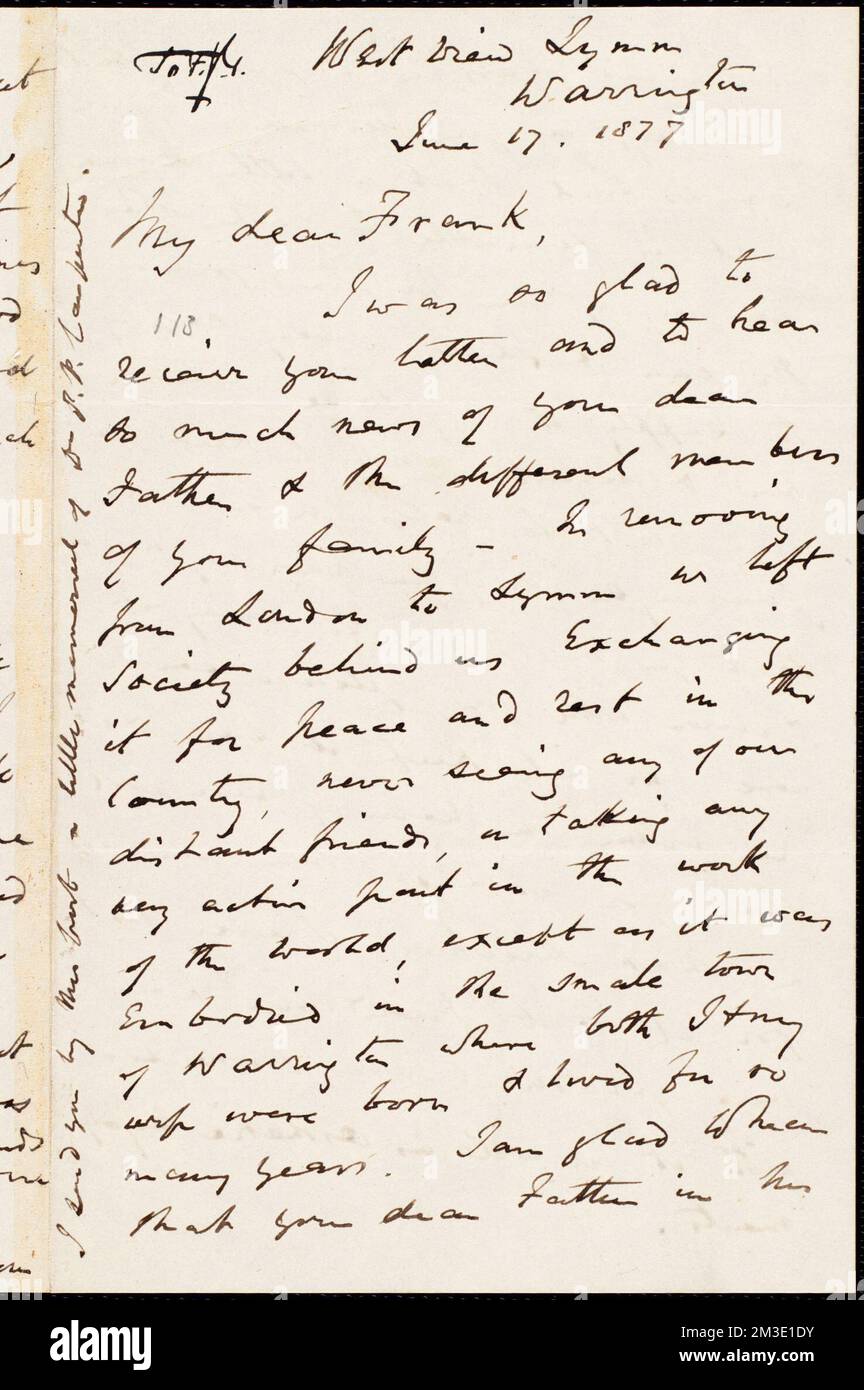 West View Lymm
Warrington
June 17. 1877
My dear Frank,
I was so glad to
113
recieve your letter and to hear
so much news of your dear
Father & the different members
of your family - In removing
from London to Lymm we left
Society behind us Exchanging
it for peace and rest in the
Country, never seeing any of our
distant friends, or taking any
very active part in the work
of the world, except as it was
Embodied in the small town
of Warrington where both I & my
wife were born & lived for so
many years. I am glad
that your dear Father in his
I send you by this post a little memorial of Dr P. P. Carpenter.
alamy
Image ID: 2M3E1DY
www.alamy.com